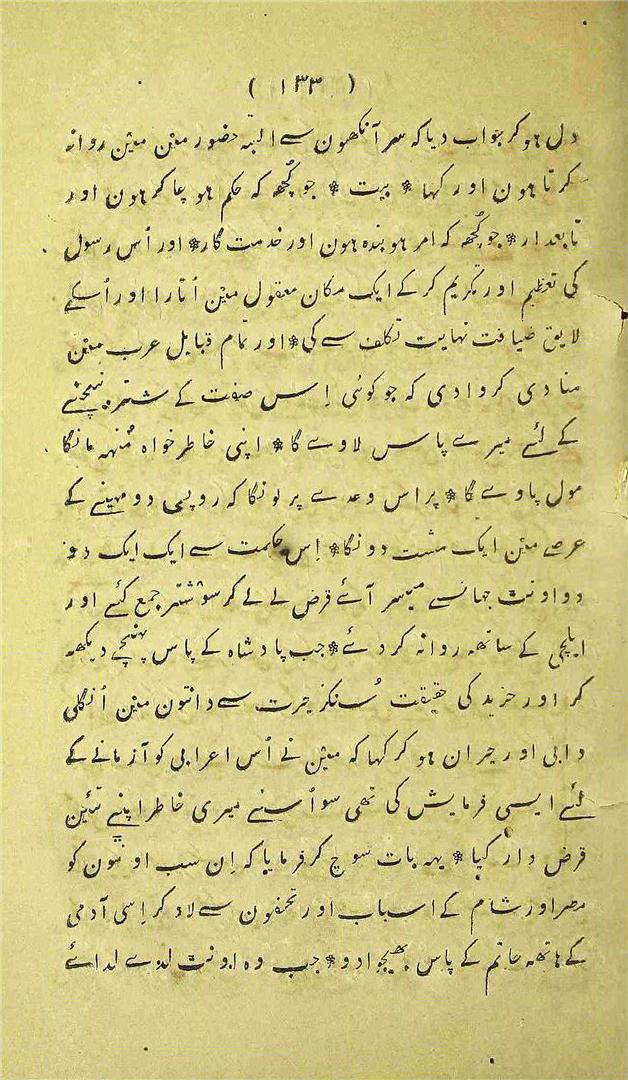 ( ١٣٣ )
دل هوکر جواب دیا که سر آنکھون سے البتّه حضور مین مین روانه
کرتا هون اور کہا * بیت * جو کُچھ که حکم هو چاکر هون اور
تابعدار * جو کُچھ که امر هو بنده هون اور خدمت گار * اور اُس رسول
کی تعظیم اور تکریم کر کے ایک مکان معقول مین اُتارا اور اُسکے
لایق ضیافت نہایت تکلف سے کی * اور تمام قبایل عرب مین
منادی کروادی که جو کوئی اِس صفت کے شتر بیچنے
کے لئے میرے پاس لاوے گا * اپنی خاطر خواه مُنهه مانگا
مول پاوے گا * پر اس وعدے پر لونگا که روپی دو مہینے کے
عرصے مین ایک مشت دونگا * اِس حکمت سے ایک ایک دو
دو اونٹ جہانسے میسر آئے قرض لے لے کر سو شتر جمع کئے اور
ایلچی کے ساتهه روانه کر دئے * جب پادشاه کے پاس پہنچے دیکهه
کر اور خرید کی حقیقت سُنکر حیرت سے دانتون مین اُنگلی
دابی اور حیران هو کر کہا که مین نے اُس اعرابی کو آزمانے کے
لئے ایسی فرمایش کی تھی سو اُسنے میری خاطر اپنے تئین
قرض دار کیا * یهه بات سوچ کر فرمایا که اِن سب اونٹون کو
مصر اور شام کے اسباب اور تحفون سے لاد کر اِسی آدمی
کے هاتهه حاتم کے پاس بھیجوادو * جب وه اونٹ لدے لدائے